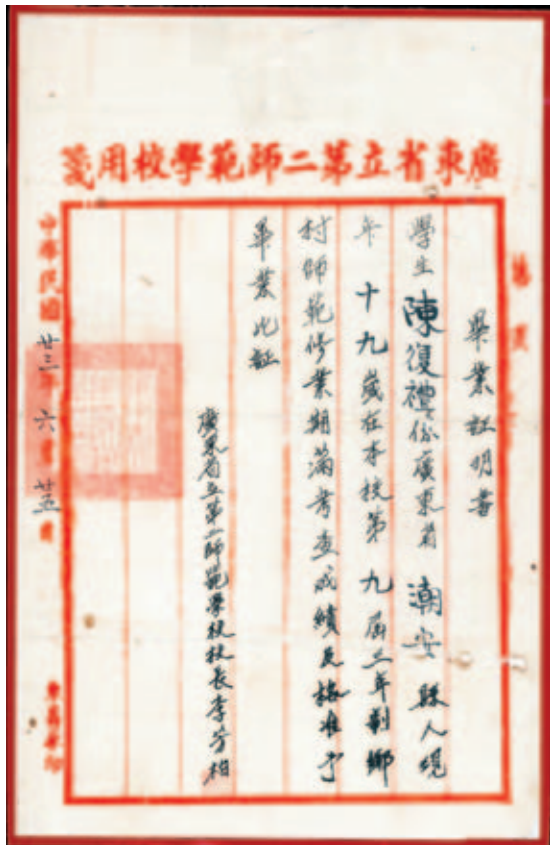 廣東省立第二師範學校用箋
畢業証明書
學生陳復禮係廣東省潮安縣人現
年十九歲在本校第九屆三年制鄉
村師範修業期滿考查成績及格准予
畢業此証
廣東省立第二師範學校校長李芳柏
中華民國廿三年六月廿五日